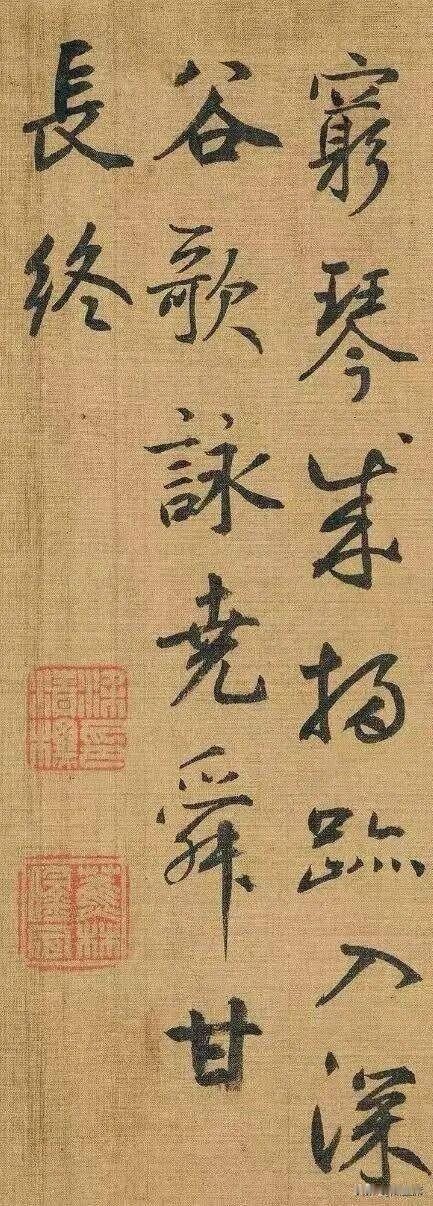 窮琴掃跡入深
谷歌詠堯舜甘
長終